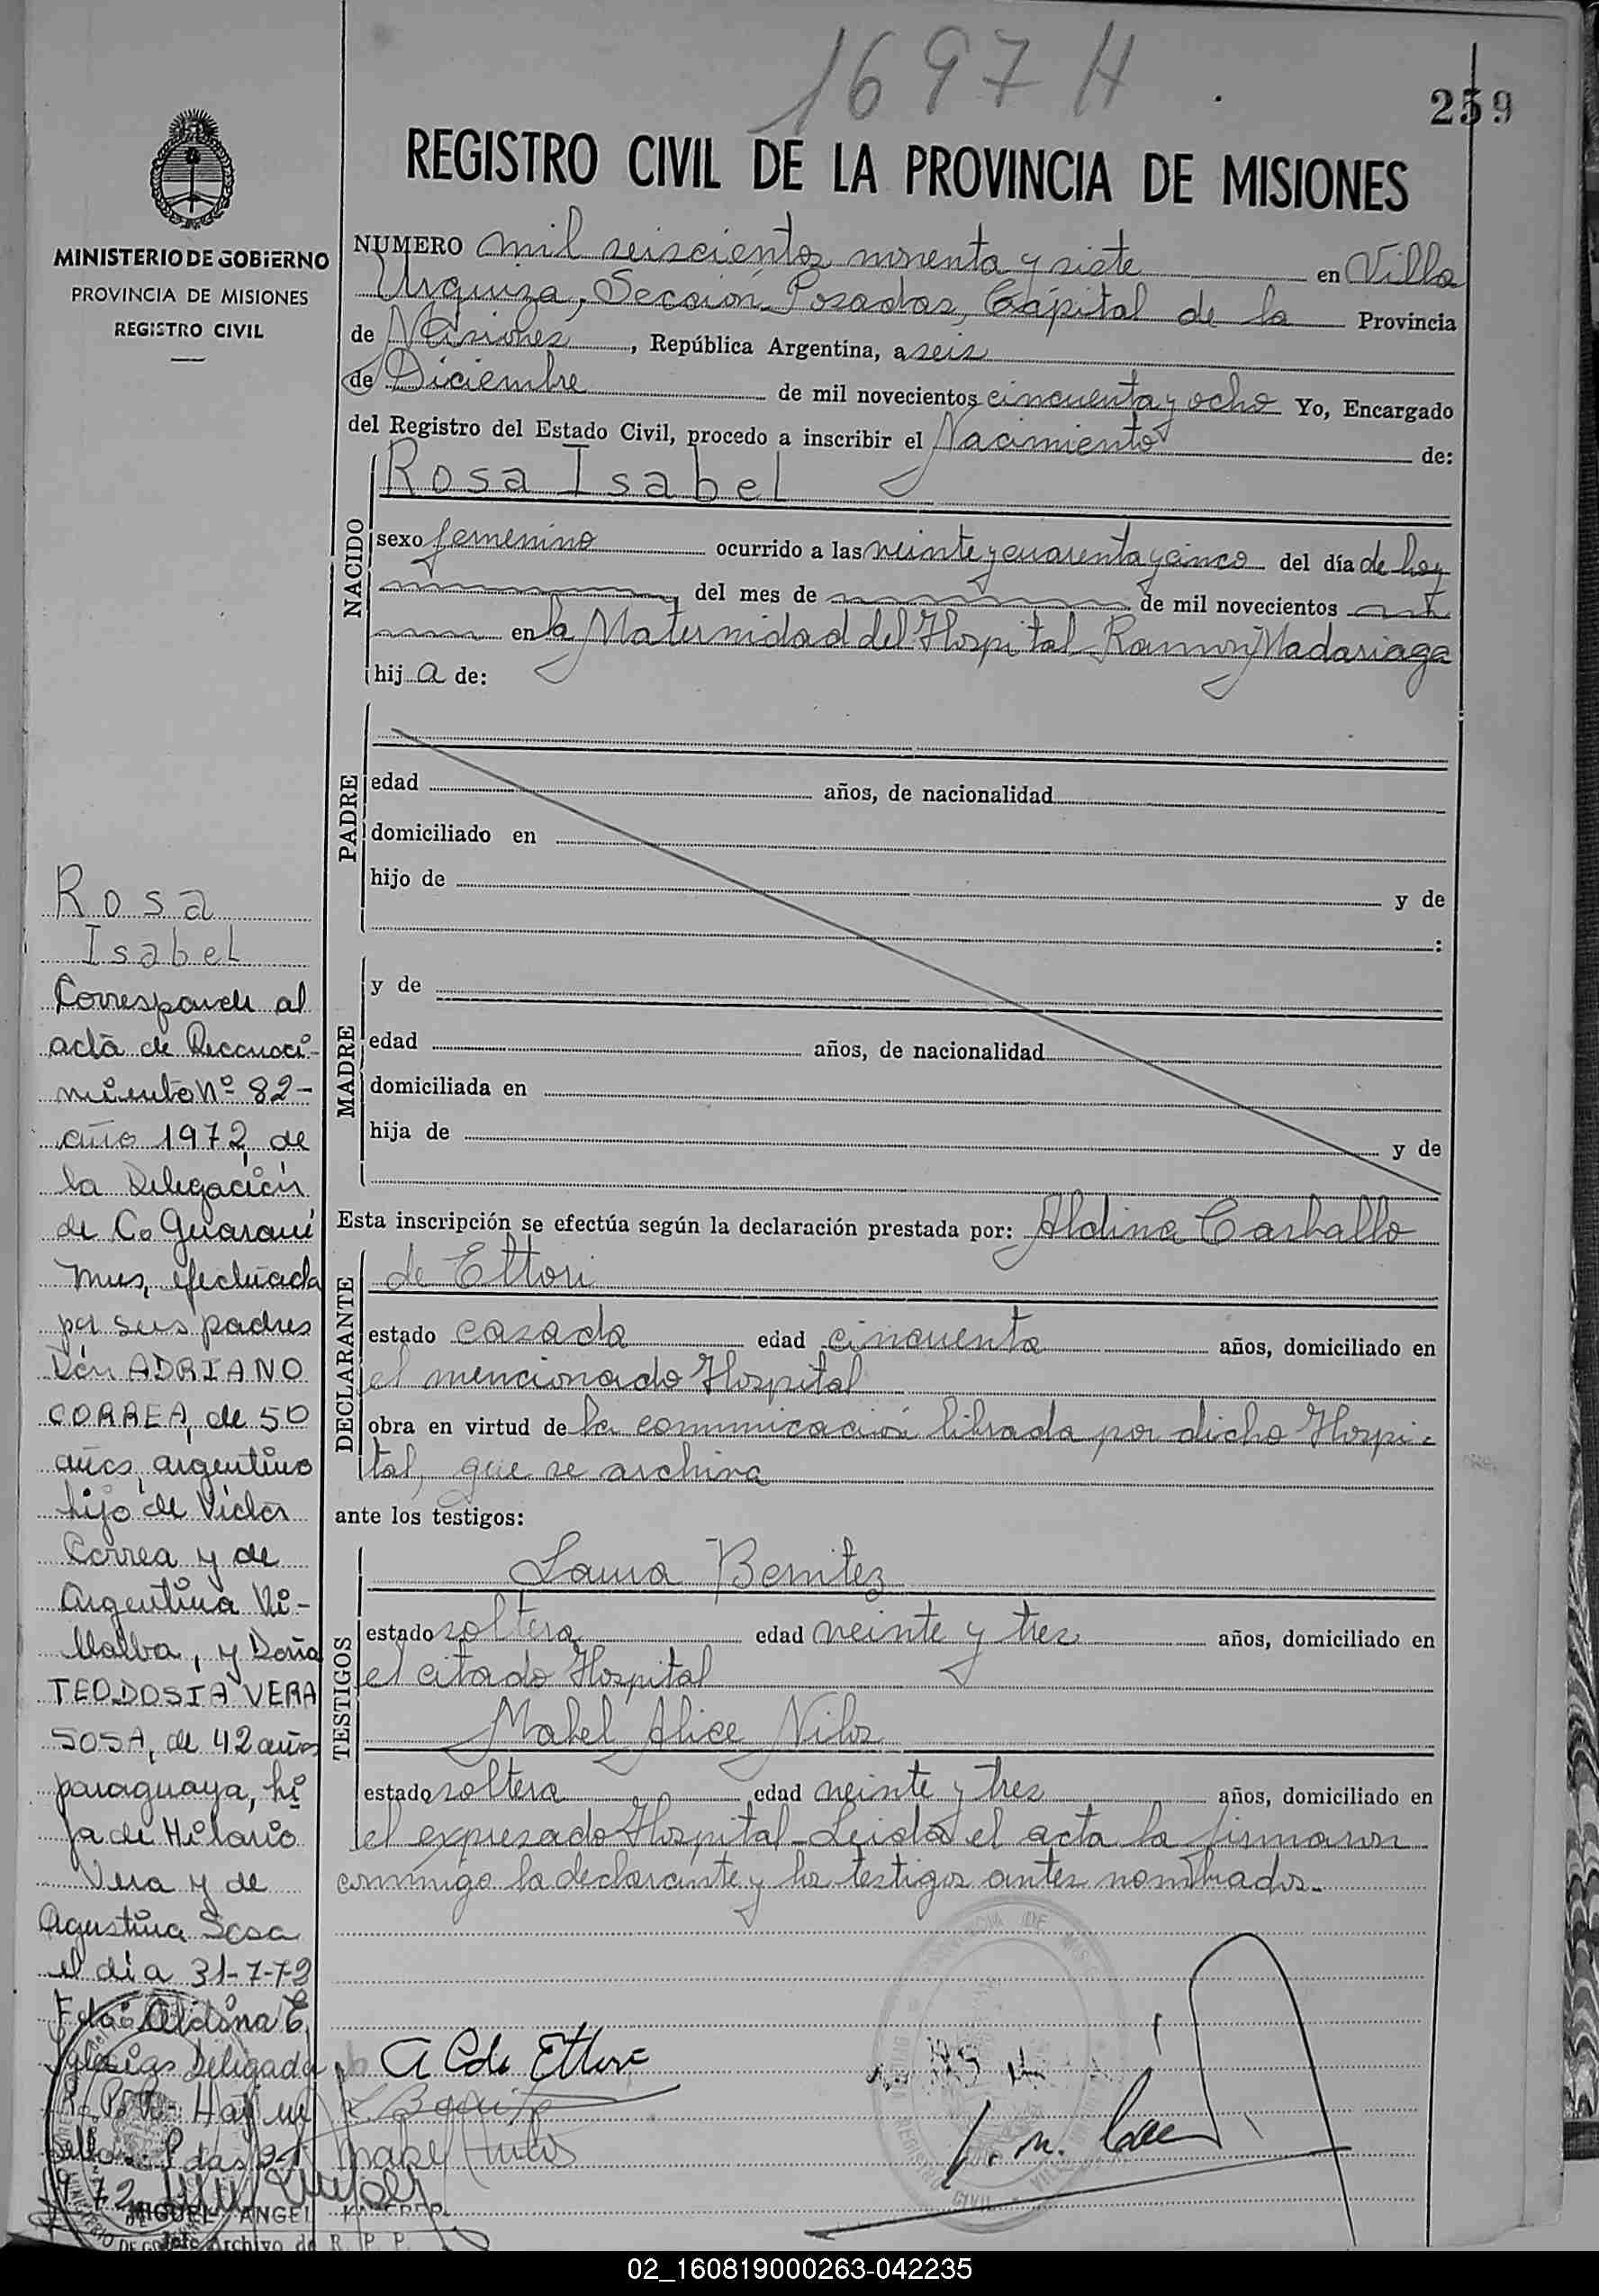 1697 H
259
REGISTRO CIVIL DE LA PROVINCIA DE MISIONES
MINISTERIO DE GOBIERNO
PROVINCIA DE MISIONES
REGISTRO CIVIL
NUMERO mil seiscientos noventa y siete en Villa
Urquiza, Sección Posadas, Capital de la Provincia
de Misiones, República Argentina, a seis
de Diciembre de mil novecientos cincuenta y ocho Yo, Encargado
del Registro del Estado Civil, procedo a inscribir el Nacimiento de:
NACIDO
Rosa Isabel
sexo femenino ocurrido a las veinte y cuarenta y cinco del día de hoy
del mes de de mil novecientos
en la Maternidad del Hospital Ramón Madariaga
hij a de:
PADRE
edad años, de nacionalidad
domiciliado en
hijo de y de
:
MADRE
y de
edad años, de nacionalidad
domiciliada en
hija de y de
Esta inscripción se efectúa según la declaración prestada por: Aldina Carballo
DECLARANTE
de Ettori
estado casada edad cincuenta años, domiciliado en
el mencionado Hospital
obra en virtud de la comunicación librada por dicho Hospi-
tal, que se archiva
ante los testigos:
TESTIGOS
Laura Benitez
estado soltera edad veinte y tres años, domiciliado en
el citado Hospital
Mabel Alice Nilos
estado soltera edad veinte y tres años, domiciliado en
el expresado Hospital - Leida el acta la firmaron
conmigo la declarante y los testigos antes nombrados.
Rosa
Isabel
Corresponde al
acta de Reconoci-
miento Nº 82-
año 1972, de
la Delegación
de Cº Guaraní
Mnes, efectuada
por sus padres
Don ADRIANO
CORREA, de 50
años, argentino
hijo de Victor
Correa y de
Argentina Vi-
llalba, y Doña
TEODOSIA VERA
SOSA, de 42 años
paraguaya, hi
ja de Hilario
Vera y de
Agustina Sosa
el día 31-7-72
Fdo: Aldina E.
Iglesias Delegada
R. P. P. - Hay un
sello. Pdas
1972
A C de Ettori
L Benitez
Mabel Nilos
MIGUEL ANGEL
Jefe Archivo de R. P. P.
02_160819000263-042235